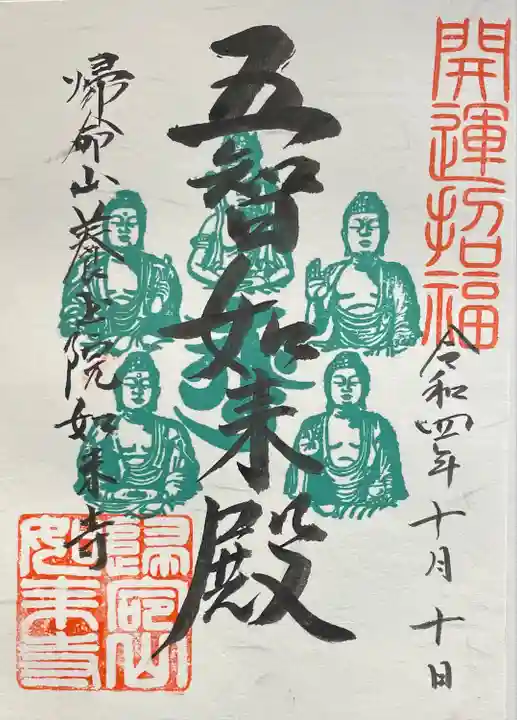 開運招福
令和四年十月十日
五智如来殿
帰命山養玉院如来寺
歸命山
如来寺